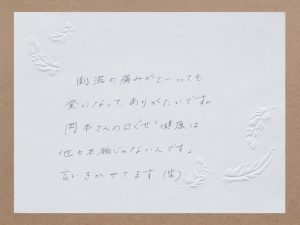 側湾の痛みがとーっても
楽になって、ありがたいです。
岡本さんの口ぐせ「健康は
他力本願じゃないんです」
言いきかせてます(笑)